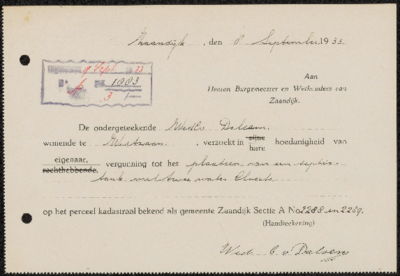 Zaandijk, den 8 September 1933.
9 Sept. 33
1003
3
Aan
Heeren Burgemeester en Wethouders van
Zaandijk.
De ondergeteekende Wed.
wonende te verzoekt in zijne
hare hoedanigheid van
eigenaar,
rechthebbende, vergunning tot het plaatsen van een septic
tank met twee water closets
op het perceel kadastraal bekend als gemeente Zaandijk Sectie A No. 2288 en 2289.
(Handteekening)
Wed. C. v.